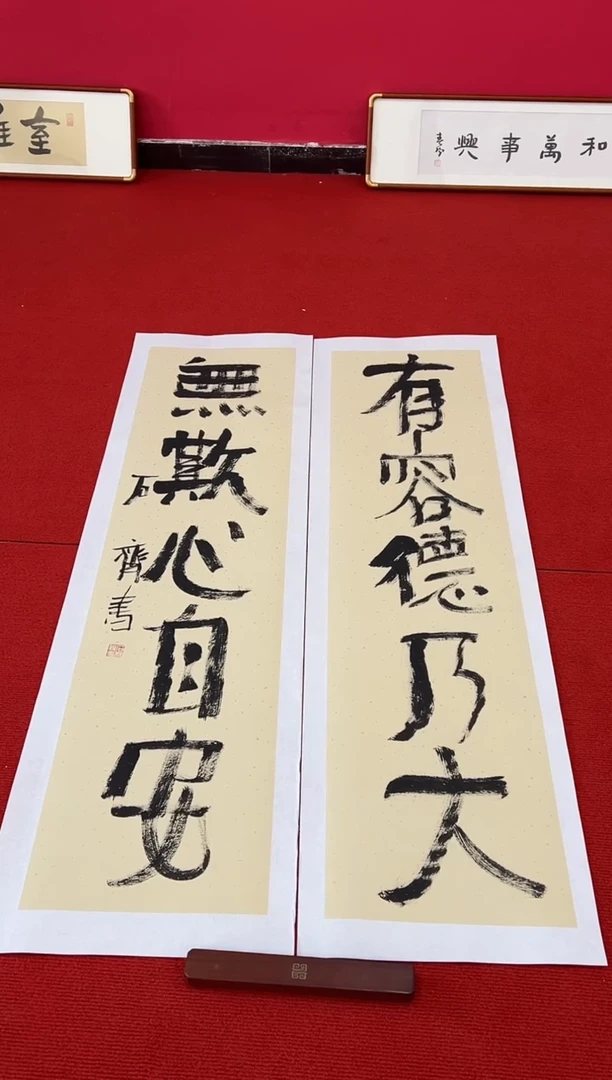 有容德乃大
無欺心自安
石齊書
室
和萬事興